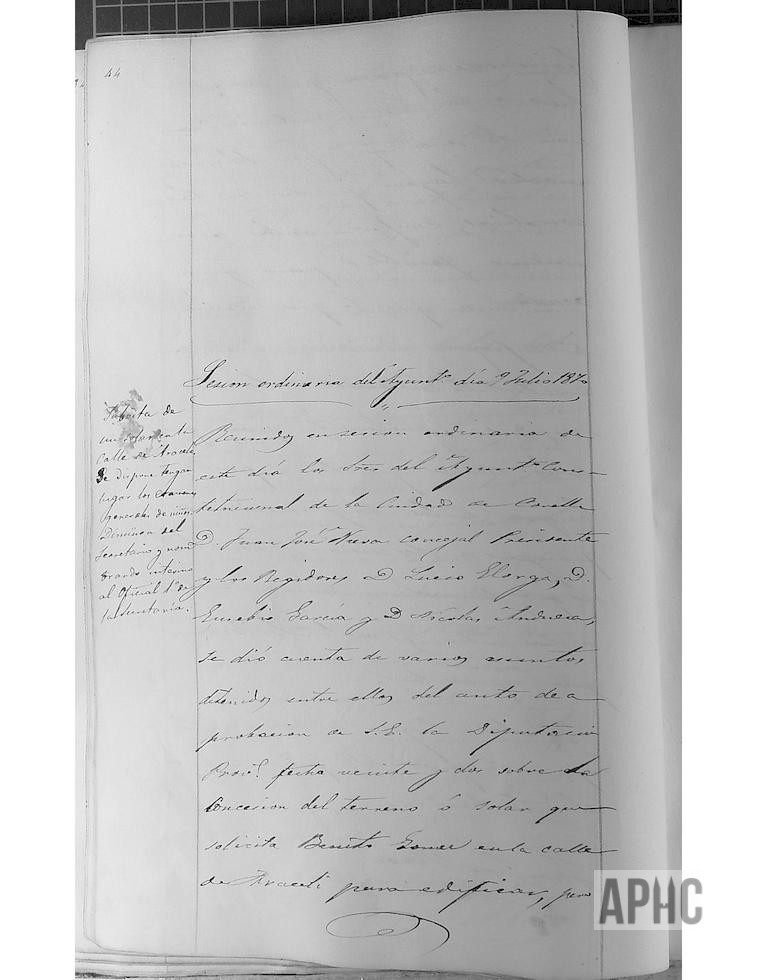 44
Sesion ordinaria del Ayunt.º dia 9 Julio 1870
Subasta de
un solar en la
calle de Araceli
Se dispone tengan
lugar los examenes
generales de niños
Dimision del
Secretario y nom
brando interino
al Oficial 1º de
la Secretaria.
Reunidos en sesion ordinaria de
este dia los Sres del Ayunt.º Cons-
titucional de la Ciudad de Corella
D. Juan José concejal Presidente
y los Regidores D Lucio Elorga, D.
Eusebio Garcia y D Nicolas Andueza,
se dió cuenta de varios asuntos
detenidos entre ellos del auto de a
probacion de S.E. la Diputacion
Prov.l fecha veinte y dos sobre la
Concesion del terreno ó solar que
solicita Benito Gomez en la calle
de Araceli para edificar, pero
APHC